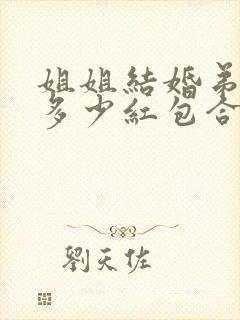 姐姐結婚弟
多少紅包合
劉天佐